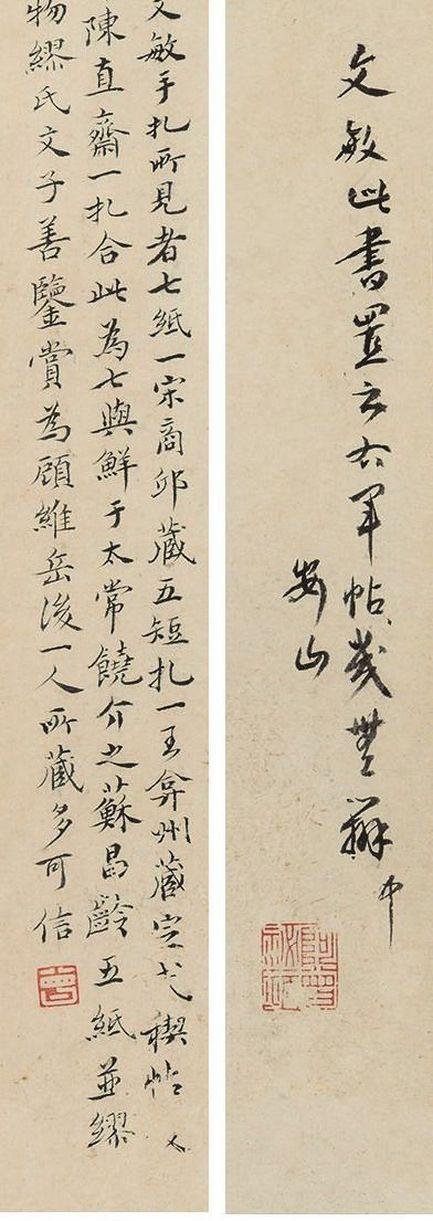 文敏此書置之右軍帖幾無辨
安山
文敏手札所見者七紙一宋商邱藏五短札一王弇州藏定武禊帖又
陳直齋一札合此為七與鮮于太常饒介之蘇昌齡五紙並繆
物繆氏文子善鑒賞為顧維岳後一人所藏多可信